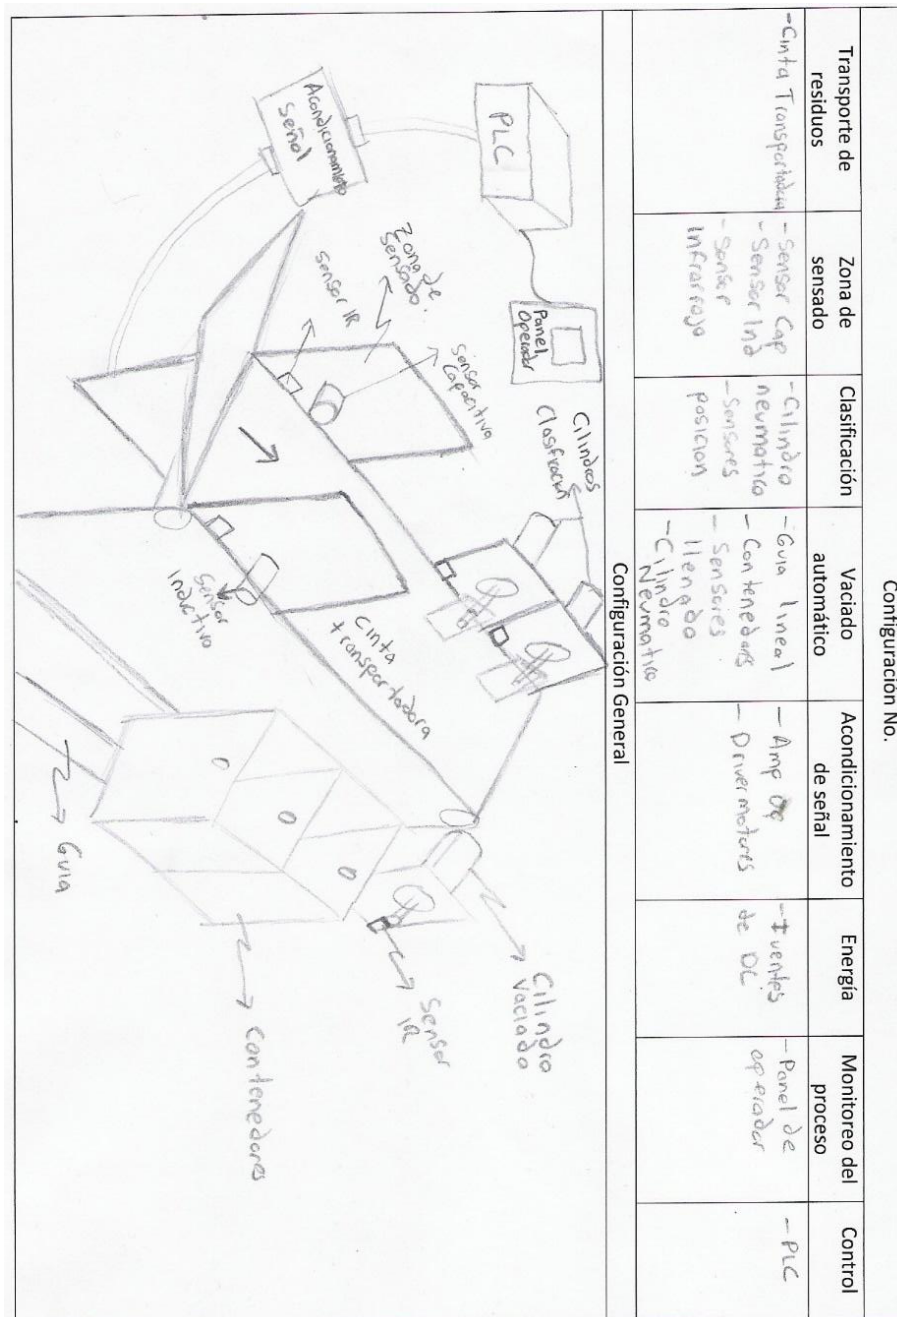 Configuración No.
Transporte de
residuos
Zona de
sensado
Clasificación
Vaciado
automático
Acondicionamiento
de señal
Energía
Monitoreo del
proceso
Control
- Cinta Transportadora
- Sensor Cap
- Sensor Ind
- Sensor
Infrarrojo
- Cilindro
neumatico
- Sensores
posicion
- Guia lineal
- Contenedores
- Sensores
llenado
- Cilindro
Neumatico
- Amp Op
- Driver motores
- Fuentes
de DC
- Panel de
operador
- PLC
Configuración General
PLC
Panel
Operador
Acondicionamiento
Señal
Zona de
Sensado.
Sensor IR
Sensor
Capacitivo
Cilindros
Clasificacion
Sensor
Inductivo
Cinta
transportadora
Guia
Cilindro
Vaciado
Sensor
IR
Contenedores